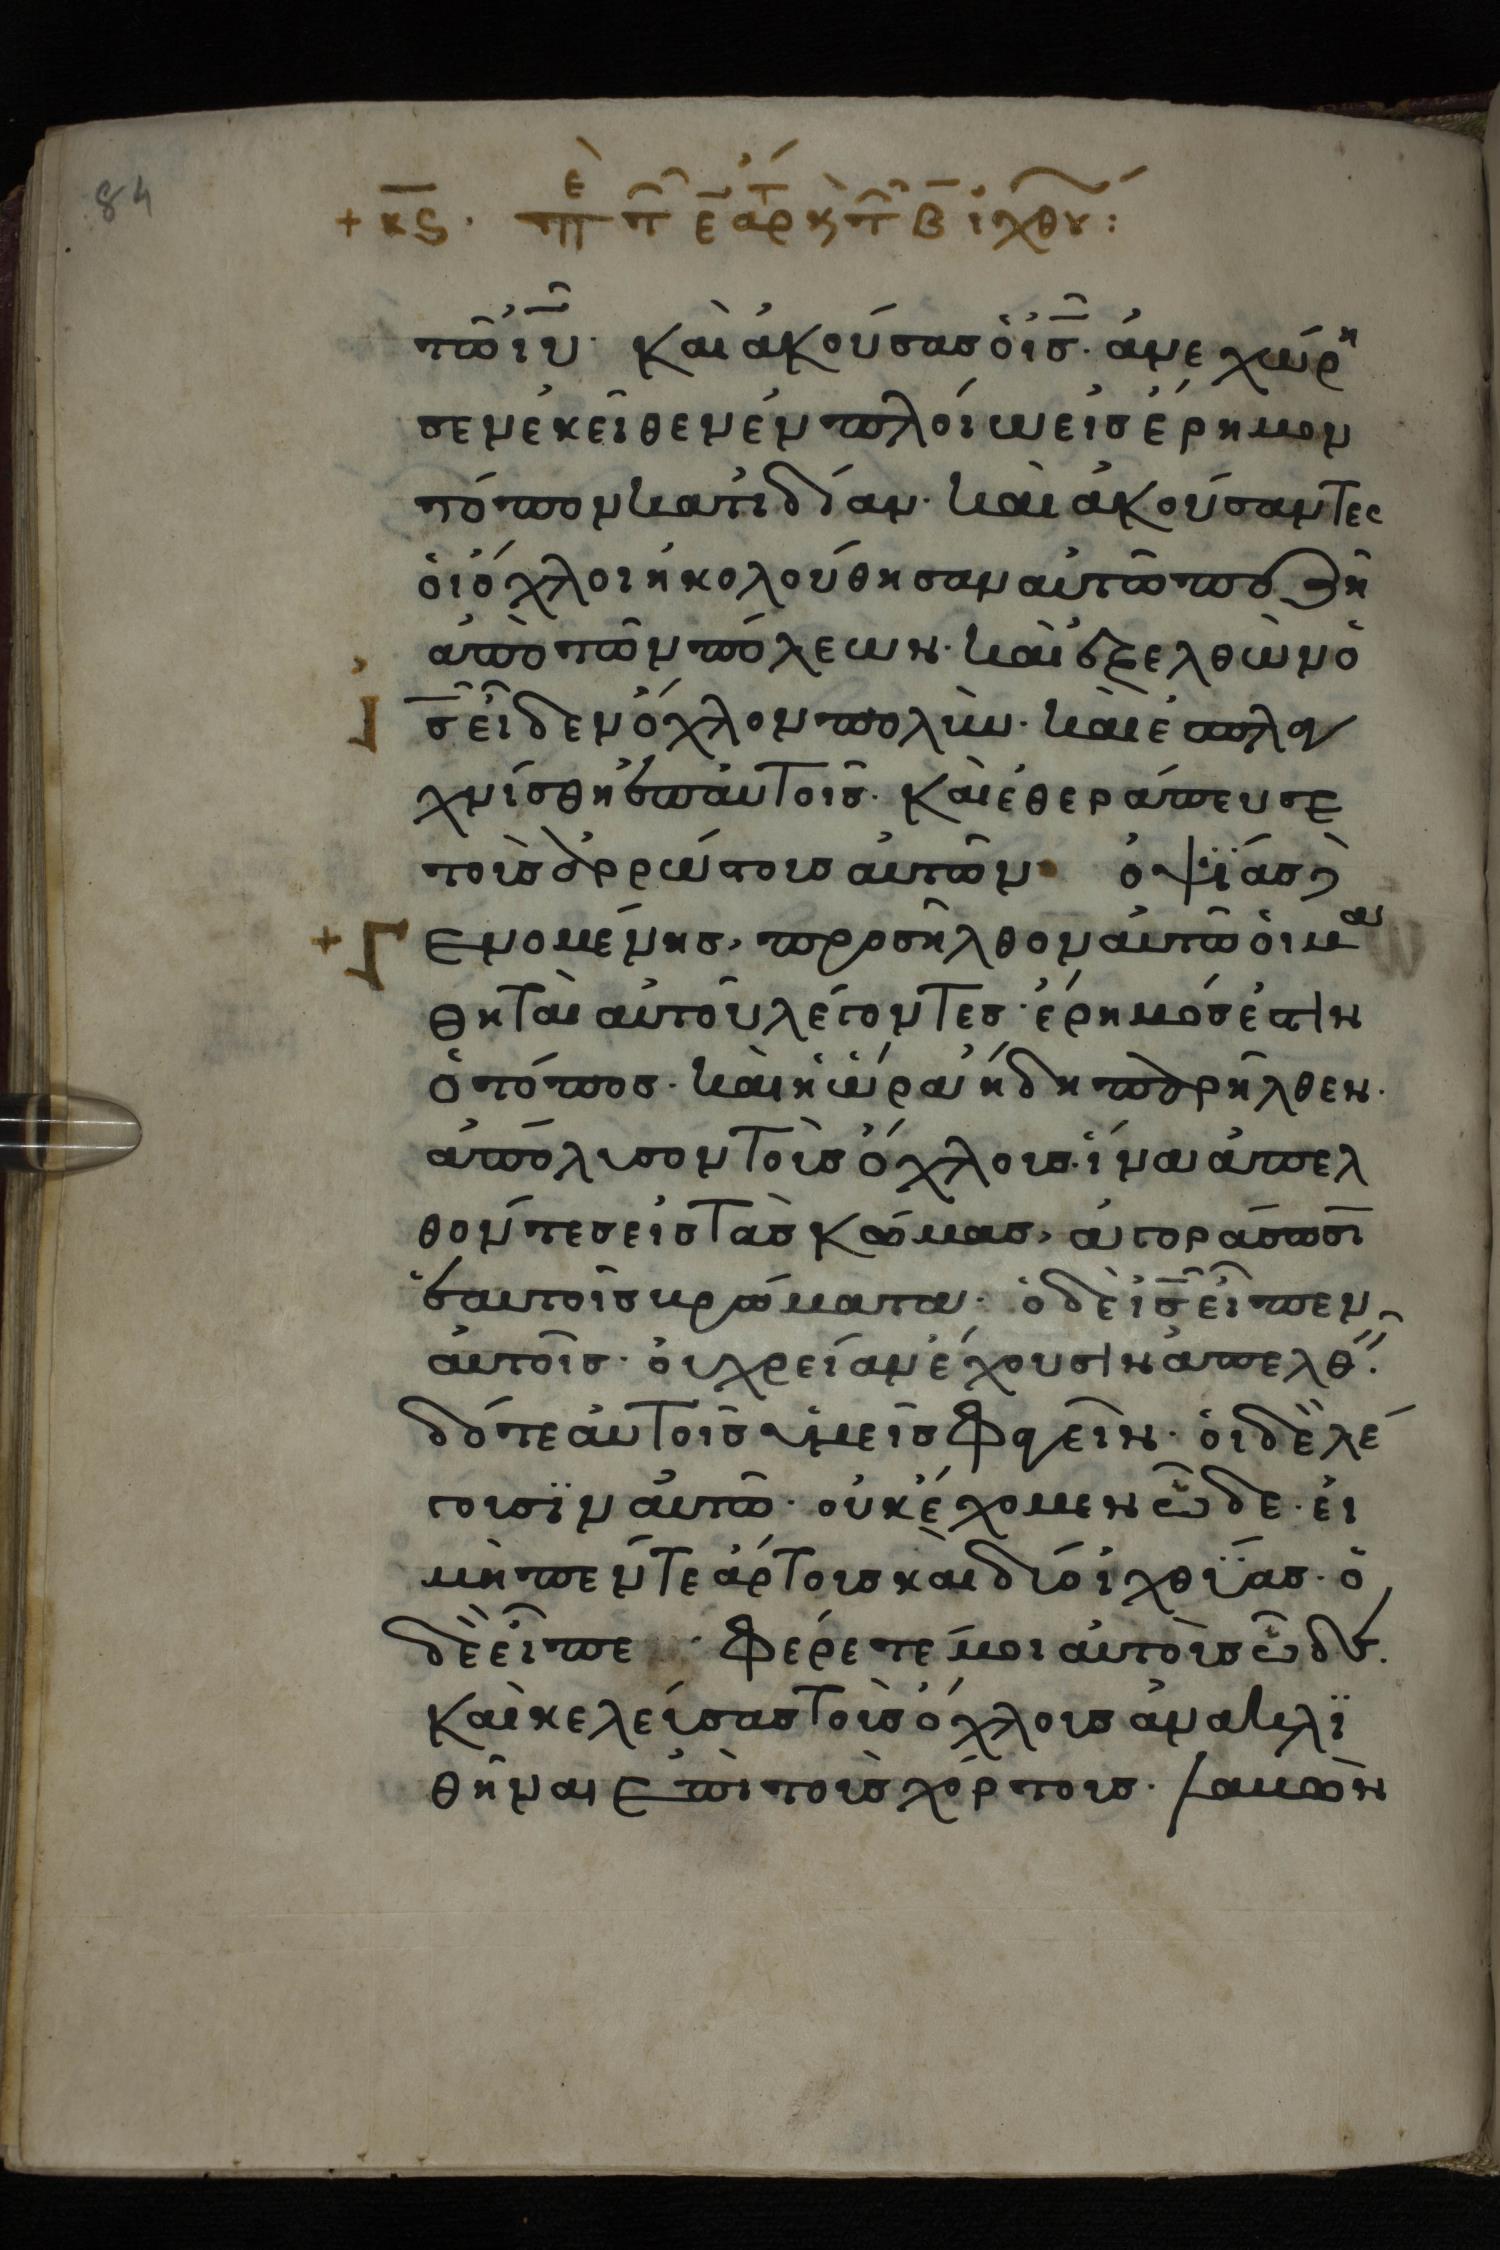 84
+ κς· πε τ τ ε αρτ κ τ β ιχθυ:
τῶ ἰυ· καὶ ἀκούσας ὁ ἰς· ἀνεχώρη
σεν ἐκεῖθεν ἐν πλοίω εἰς ἔρημον
τόπον κατιδίαν· καὶ ἀκούσαντες
οἱ ὄχλοι ἠκολούθησαν αὐτῶ πεζῆ
ἀπὸ τῶν πόλεων· καὶ ἐξελθὼν ὁ
ἰς εἶδεν ὄχλον πολὺν· καὶ ἐσπλα
χνίσθη ἐπαυτοῖς· καὶ ἐθεράπευσε
τοὺς ἀρρώστους αὐτῶν· ὀψϊάς
+ γενομένης, προσῆλθον αὐτῶ οἱ μα
θηταὶ αὐτοῦ λέγοντες· ἔρημός ἐστιν
ὁ τόπος· καὶ ἡ ὥρα ἤδη παρῆλθεν·
ἀπόλυσον τοὺς ὄχλους· ἵνα ἀπελ
θόντες εἰς τὰς κώμας, ἀγοράσωσι
ἑαυτοῖς βρώματα· ὁ δὲ ἰς εἶπεν
αὐτοῖς· οὐ χρείαν ἔχουσιν ἀπελθ·
δότε αὐτοῖς ὑμεῖς φαγεῖν· οἱ δὲ λέ
γουσϊν αὐτῶ· οὐκ ἔχομεν ὧδε· εἰ
μὴ πέντε ἄρτους καὶ δύο ἰχθϋας· ὁ
δὲ εἶπε· φέρετέ μοι αὐτοὺς ὧδε·
καὶ κελεύσας τοὺς ὄχλους ἀνακλϊ
θῆναι ἐπὶ τοὺς χόρτους· λαβὼν